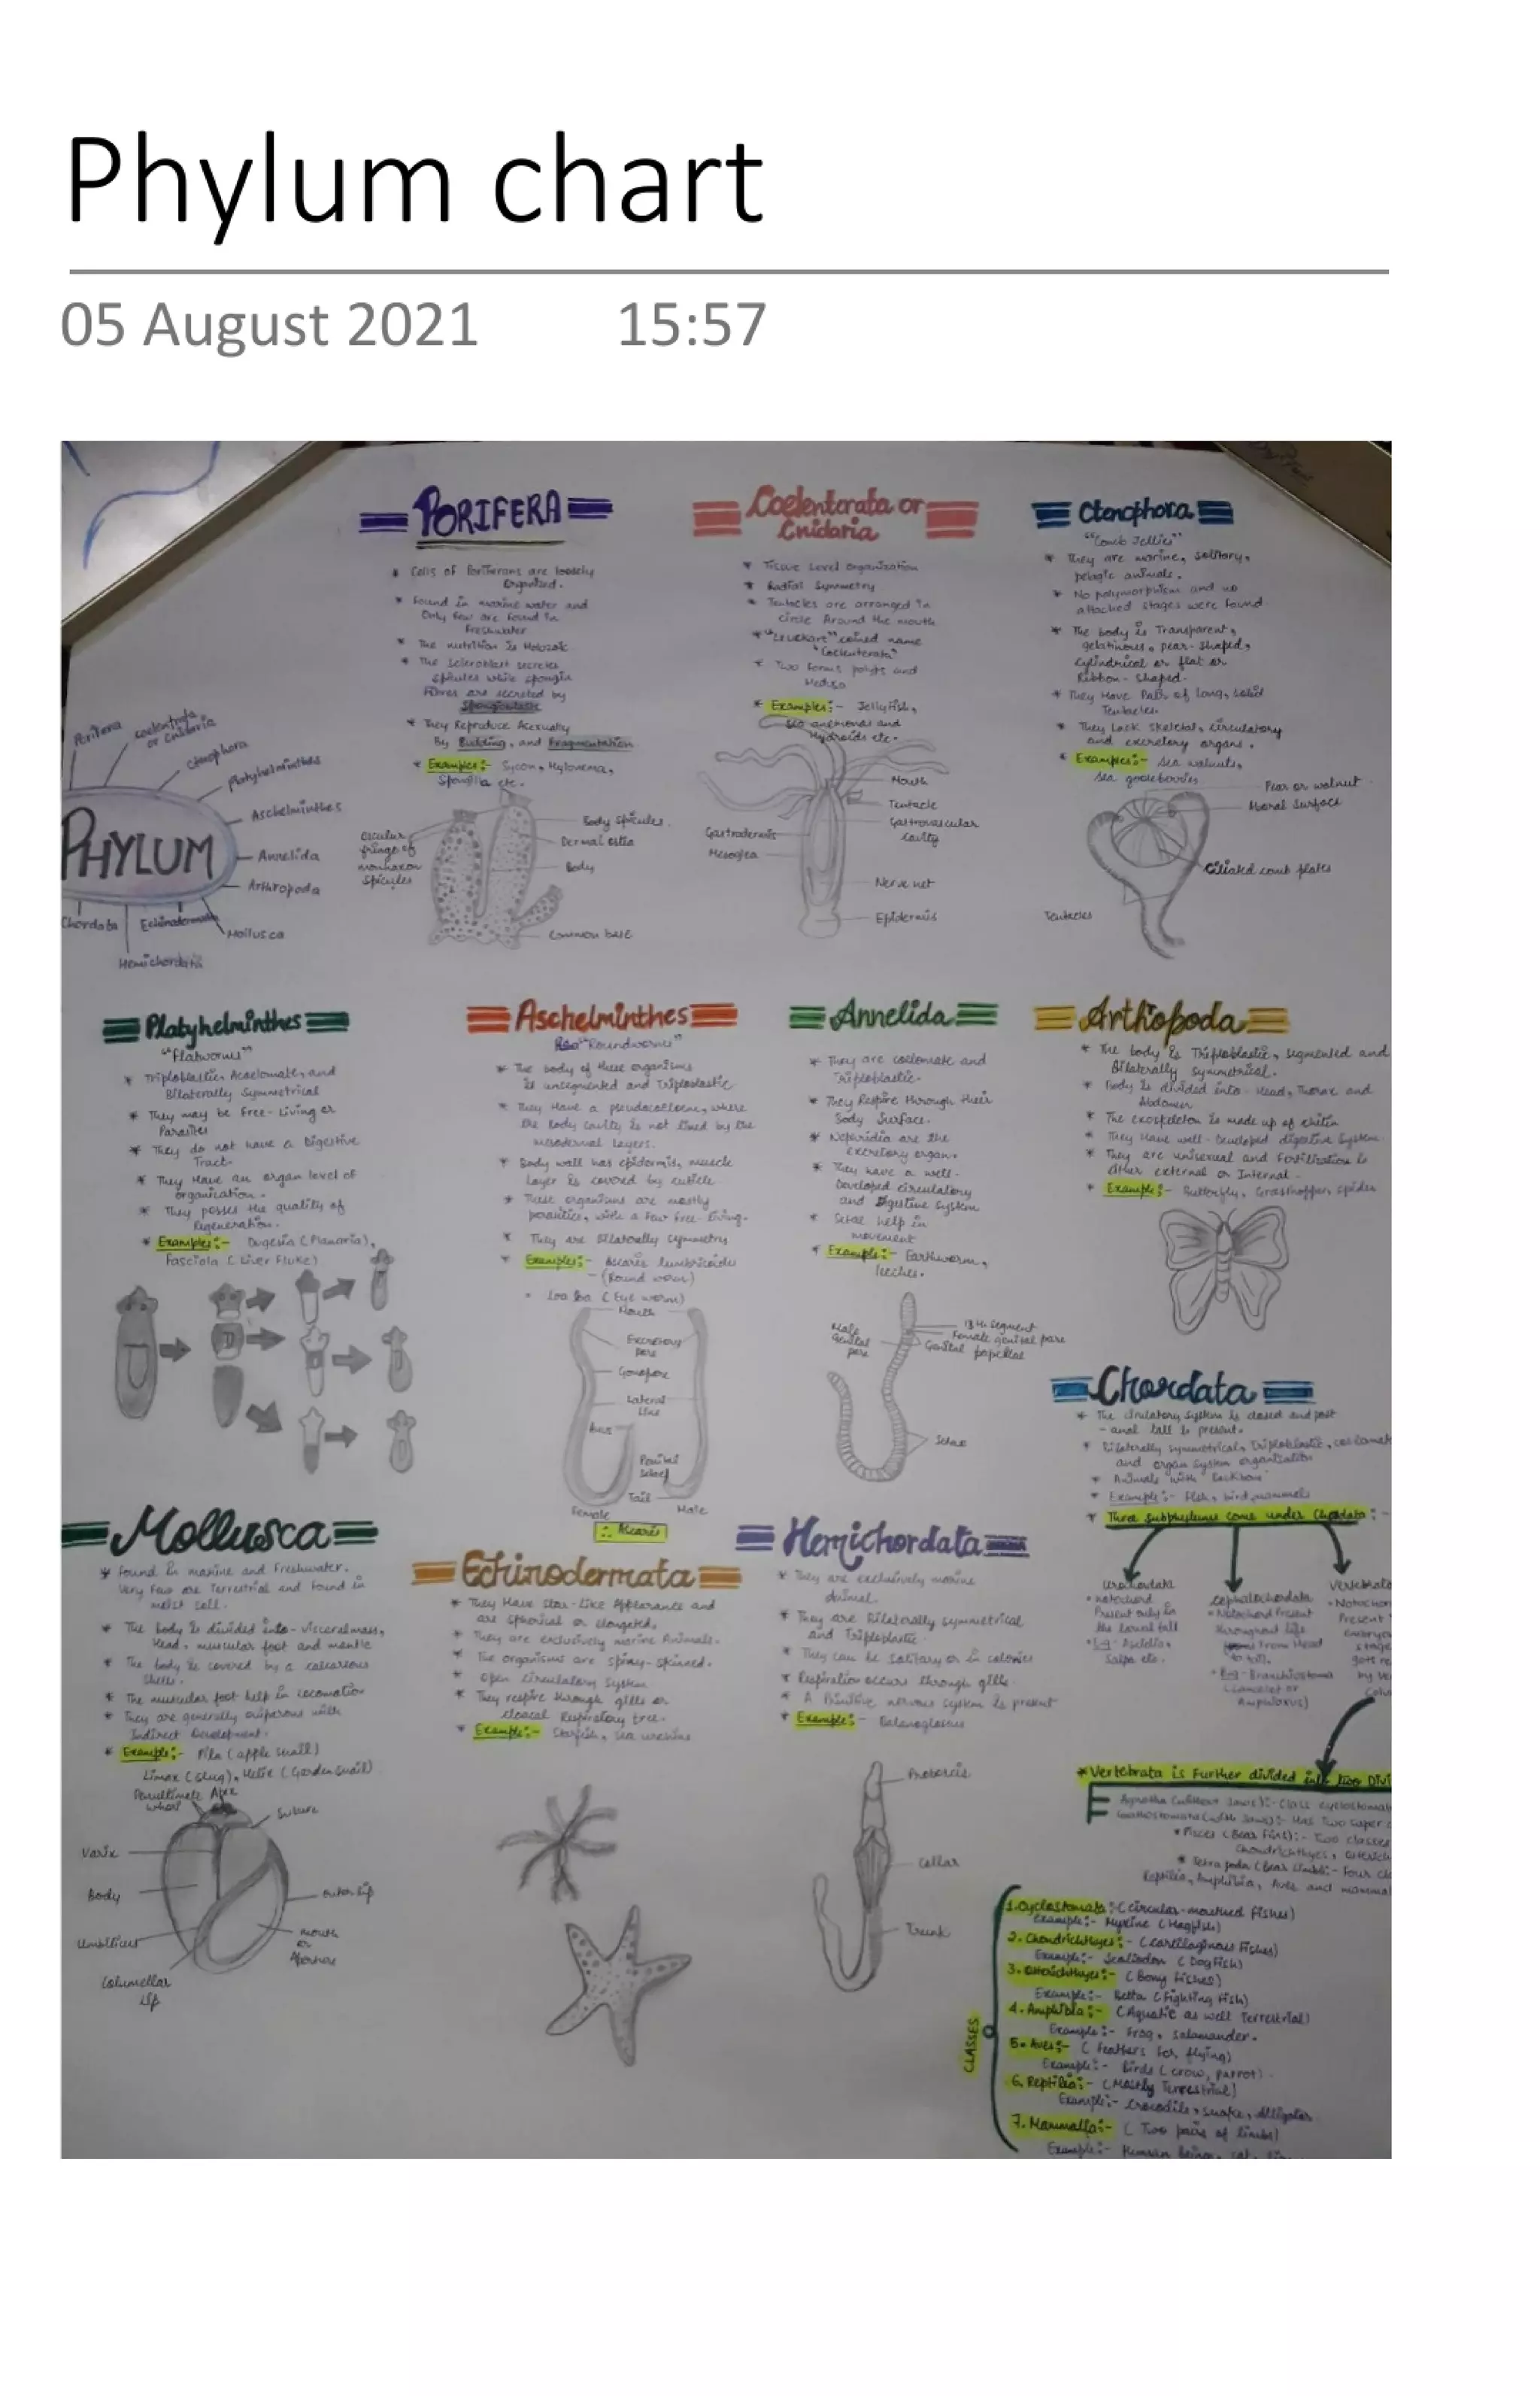 Phylum chart
05 August 2021 15:57
PHYLUM
Porifera
Coelentrata
or Cnidaria
Ctenophora
Platyhelminthes
Aschelminthes
Annelida
Arthropoda
Mollusca
Echinodermata
Hemichordata
Chordata
PORIFERA
* Cells of Poriferans are loosely
Organised.
* Found in marine water and
Only few are found in
Freshwater
* The nutrition is Holozoic.
* The scleroblast secretes
spicules while spongin
Fibres are secreted by
Spongioblasts
* They Reproduce Asexually
By Budding, and Fragmentation
* Examples:- Sycon, Hylonema,
Spongilla etc.
Body spicules
Dermal ostia
Body
Common base
fringe of
monaxon
Spicules
Coelenterata or
Cnidaria
* Tissue level organization
* Radial Symmetry
* Tentacles are arranged in
circle Around the mouth
* "Leuckart" coined name
"Coelenterata"
* Two forms polyps and
Medusa
* Examples:- Jellyfish,
Sea anemones and
Hydroids etc.
Mouth
Tentacle
Gastrovascular
cavity
Gastrodermis
Mesoglea
Nerve net
Epidermis
Ctenophora
"Comb Jellies"
* They are marine, solitary,
pelagic animals.
* No polymorphism and no
attached stages were found
* The body is Transparent,
gelatinous, pear-shaped,
cylindrical or flat or
Ribbon-shaped.
* They Have Pair of long, solid
Tentacles.
* They lack skeletal, circulatory
and excretory organs.
* Examples:- sea walnuts,
sea gooseberries
Pear or walnut
Surface
Ciliated comb plates
Tentacles
Platyhelminthes
"Flatworms"
* Triploblastic, Acoelomate, and
Bilaterally Symmetrical
* They may be Free-Living or
Parasites
* They do not have a Digestive
Tract.
* They Have an organ level of
organization.
* They posses the quality of
Regeneration.
* Examples:- Dugesia (Planaria),
Fasciola (Liver Fluke)
Aschelminthes
"Roundworms"
* The body of these organisms
is unsegmented and Triploblastic
* They Have a pseudocoelom, where
the body cavity is not lined by the
mesodermal layers.
* Body wall has epidermis, muscle
layer is covered by cuticle
* These organisms are mostly
parasites, with a few free-living.
* They are Bilaterally symmetry
* Examples:- Ascaris lumbricoides
- (Round worm)
Loa loa (Eye worm)
Mouth
Excretory
pore
Gonopore
Lateral
Line
Anus
Tail
Female
Male
∴ Ascaris
Annelida
* They are coelomate and
Triploblastic.
* They Respire through their
Body surface.
* Nephridia are the
excretory organ.
* They have a well-
Developed circulatory
and Digestive system
* Setae help in
movement
* Example:- Earthworm,
leeches.
Male
Genital
pore
13th segment
Female genital pore
Genital papillae
Setae
Arthopoda
* The body is Triploblastic, segmented and
Bilaterally Symmetrical.
* Body is divided into- Head, Thorax and
Abdomen
* The exoskeleton is made up of chitin
* They Have well-Developed digestive System.
* They are unisexual and Fertilization is
either external or Internal.
* Example:- Butterfly, Grasshopper, spider
Chordata
* The circulatory system is closed and post
-anal tail is present.
* Bilaterally symmetrical, Triploblastic,
and organ system organization
* Animals with Backbone
* Example:- Fish, bird, mammals
* Three subphylums come under Chordata:-
Urochordata
• notochord
Present only in
the larval tail
• Eg- Ascidia,
Salpa etc.
Cephalochordata
• Notochord Present
throughout life
From Head
to tail.
• Eg- Branchiostoma
(Lancelet or
Amphioxus)
Present
* Vertebrata is Further divided into two Divi
Agnatha (without Jaws):- Class cyclostomat
Gnathostomata (with Jaws):- Has Two super c
* Pisces (Bear Fins):- Two classes
Chondrichthyes,
* Tetrapoda (bear limbs):- Four cl
Reptilia, Amphibia, Aves and mamma
CLASSES
1. Cyclostomata:- (circular-mouthed Fishes)
Example:- Myxine (Hagfish)
2. Chondrichthyes:- (cartilaginous Fishes)
Example:- Scoliodon (Dogfish)
3. Osteichthyes:- (Bony Fishes)
Example:- Betta (Fighting Fish)
4. Amphibia:- (Aquatic as well Terrestrial)
Example:- Frog, Salamander.
5. Aves:- (Feathers for flying)
Example:- Birds (crow, parrot).
6. Reptilia:- (Mostly Terrestrial)
Example:- Crocodile, snake, Alligator
7. Mammalia:- (Two pairs of limbs)
Example:- Human beings, cat,
Mollusca
* Found in marine and Freshwater.
Very Few are Terrestrial and found in
moist soil.
* The body is divided into- visceral mass,
Head, muscular foot and mantle
* The body is covered by a calcareous
shells.
* The muscular foot help in locomotion
* They are generally oviparous with
Indirect Development.
* Example:- Pila (apple snail)
Limax (Slug), Helix (Garden snail)
Penultimate
whorl
Apex
Suture
Varix
Body
outer lip
Umbilicus
mouth
or
Aperture
Columellar
lip
Echinodermata
* They Have star-like Appearance and
are spherical or elongated.
* They are exclusively marine Animals.
* The organisms are spiny-skinned.
* Open circulatory System
* They respire through gills or
cloacal Respiratory tree.
* Example:- Starfish, sea urchins
Hemichordata
* They are exclusively marine
animal.
* They are Bilaterally symmetrical
and Triploblastic.
* They can be solitary or in colonies
* Respiration occurs through gills.
* A Primitive nervous system is present
* Example:- Balanoglossus
Proboscis
Collar
Trunk